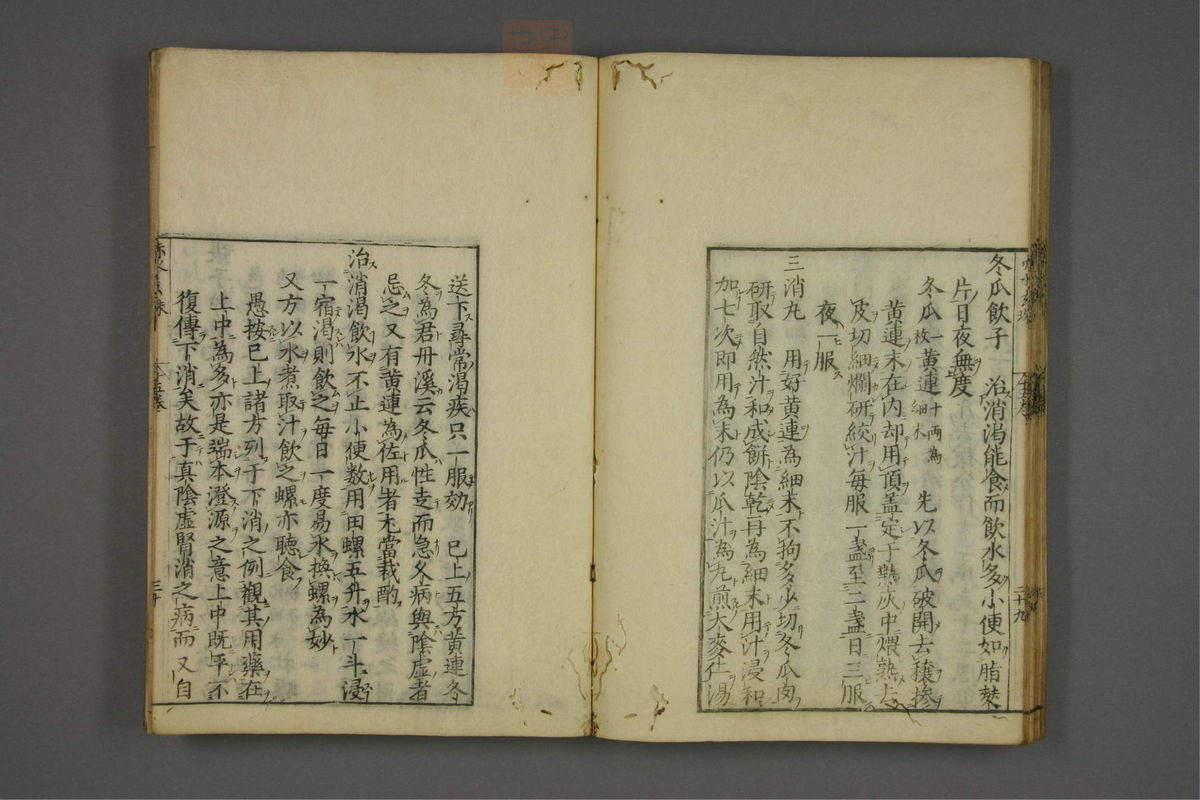 冬瓜飲子 治消渴能食而飲水多小便如脂麩
片日夜無度
冬瓜一枚黄連十両為細末 先以冬瓜破開去穣摻
黄連末在内却用頂盖定于熱灰中煨熟去
皮切細爛研絞汁毎服一盞至二盞日三服
夜一服
三消丸 用好黄連為細末不拘多少切冬瓜肉
研取自然汁和成餅陰乾再為細末用汁浸和
加七次即用為末仍以瓜汁為丸煎大麥仁湯
送下尋常渴疾只一服効 已上五方黄連冬
冬為君丹溪云冬瓜性走而急久病與陰虚者
忌之又有黄連為佐用者尤當裁酌
治消渴飲水不止小便数用田螺五升水一斗浸
一宿渴則飲之毎日一度易水換螺為妙
又方以水煮取汁飲之螺亦聴食
愚按已上諸方列于下消之例觀其用藥在
上中為多亦是端本澄源之意上中既平不
復傳下消矣故于真陰虚腎消之病而又自
二十九
三十